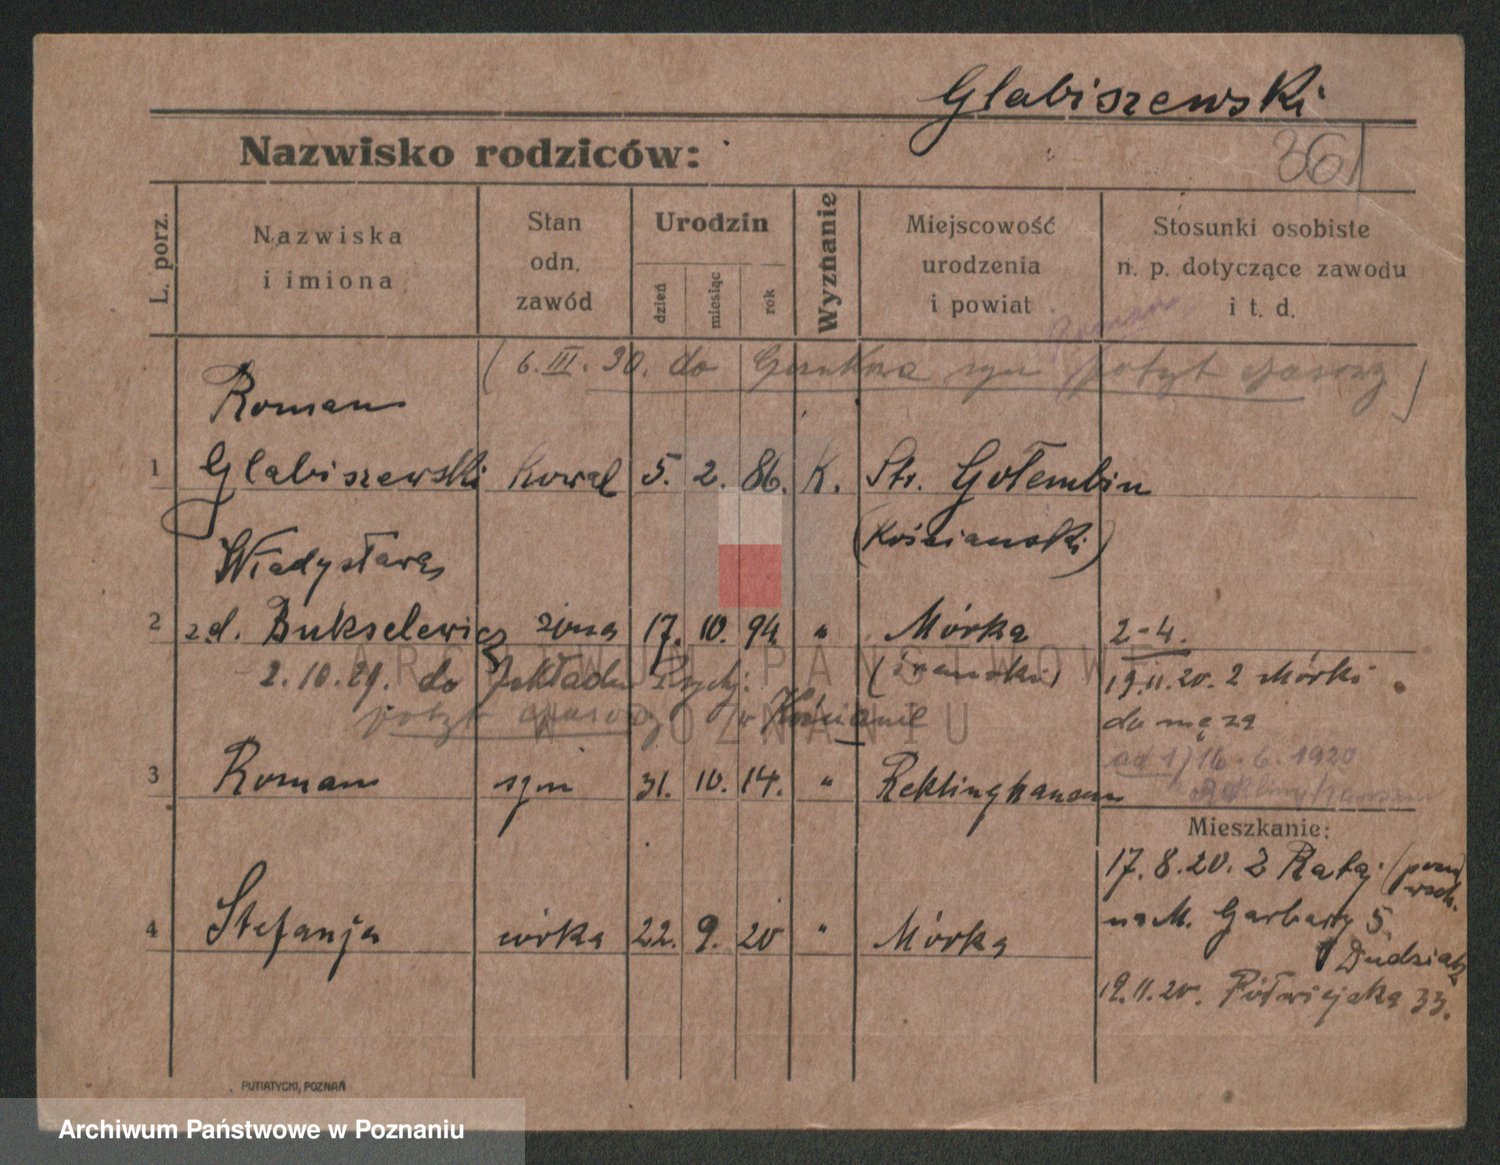 Glabiszewski
361
Nazwisko rodziców:
L. porz.
Nazwiska
i imiona
Stan
odn.
zawód
Urodzin
dzień
miesiąc
rok
Wyznanie
Miejscowość
urodzenia
i powiat
Stosunki osobiste
n. p. dotyczące zawodu
i t. d.
Roman
(6.III.30. do syn pobyt czasowy)
Roman
1 Glabiszewski kowal 5. 2. 86. K. St. Gołembin
(Kościański)
Władysława
2 zd. Bukselewicz żona 17. 10. 94 " Mórka
2-4.
2.10.29. do Zakładu Psych. (śremski)
19.11.20. z Mórki
pobyt czasowy w Kościanie
do męża
ad 1) 16.6.1920
3 Roman syn 31. 10. 14. " Reklinghausen
Mieszkanie:
17.8.20. z Rataj (pozn
wsch.
4 Stefanja córka 22. 9. 20 " Mórka
na M. Garbary 5.
Dudziak
19.11.20. Półwiejska 33.
PUTIATYCKI, POZNAŃ
ARCHIWUM PAŃSTWOWE
W POZNANIU
Archiwum Państwowe w Poznaniu